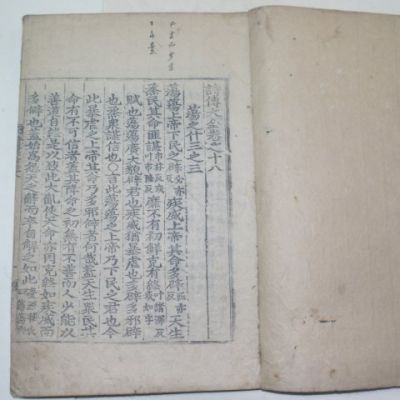 詩傳大全卷之十八
蕩之什三之三
蕩蕩上帝下民之辟疾威上帝其命多辟天生
烝民其命匪諶靡不有初鮮克有終叶諸深反或如字
賦也蕩蕩廣大貌辟君也疾威猶暴虐也多辟多邪辟
也烝衆諶信也○言此蕩蕩之上帝乃下民之君也今
此暴虐之上帝其命乃多邪辟者何哉蓋天生衆民其
命有不可信者蓋其降命之初無有不善而人少能以
善道自終是以致此大亂使天命亦罔克終如疾威而
多辟也蓋始爲怨天之辭而卒自解之如此